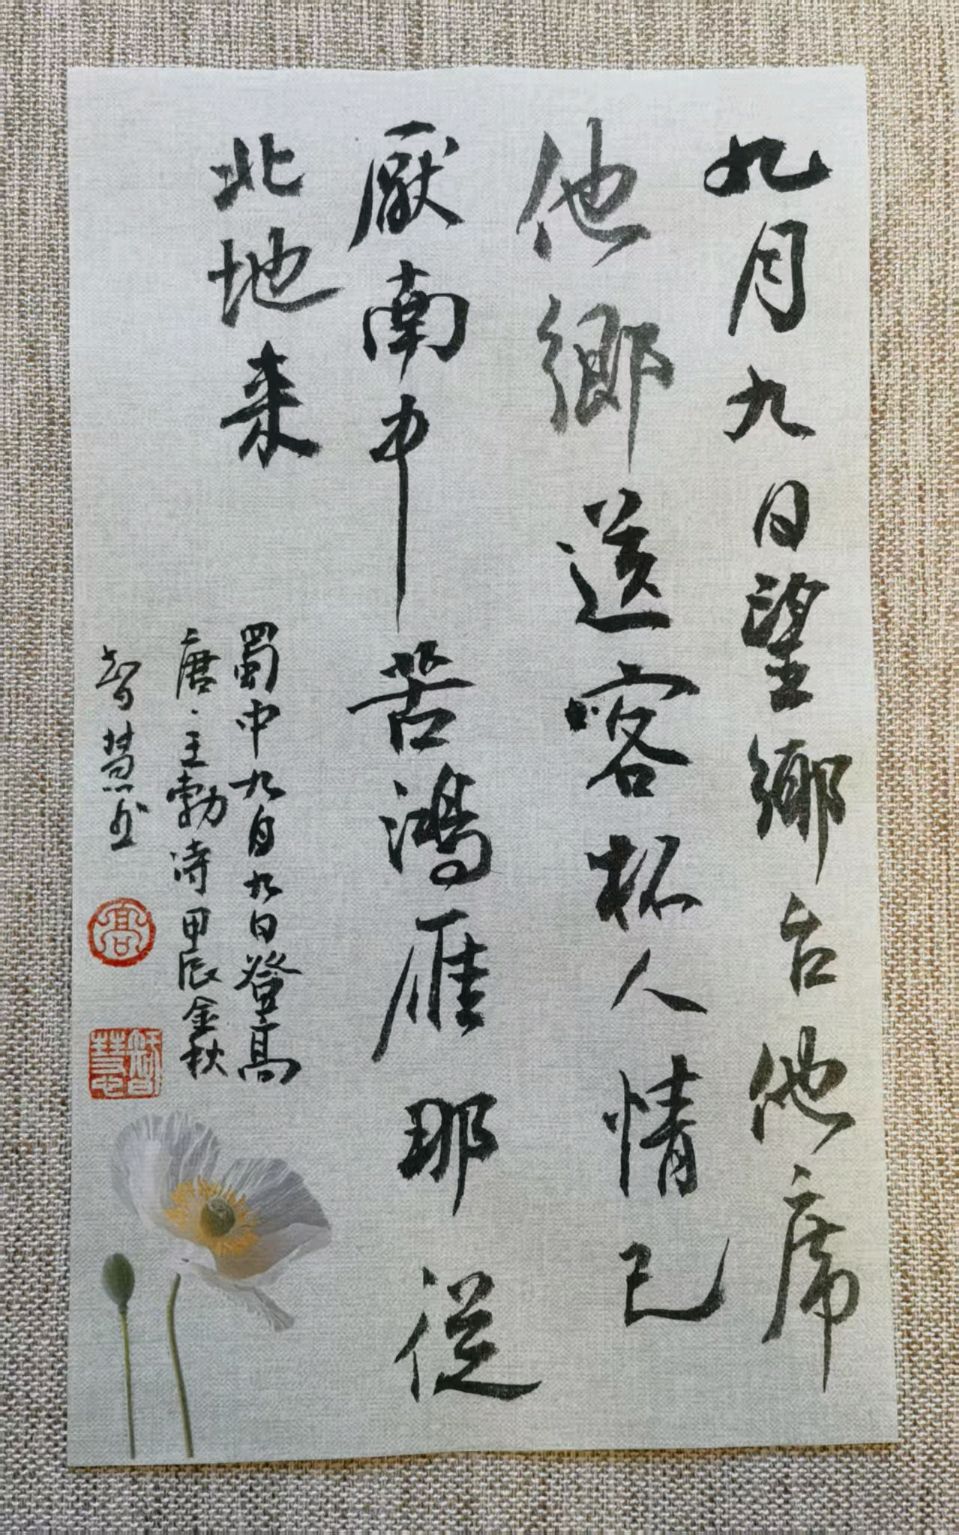 九月九日望鄉台他席
他鄉送客杯人情已
厭南中苦鴻雁那從
北地来
蜀中九月九日登高
唐·王勃诗甲辰金秋
智慧书
高
智慧